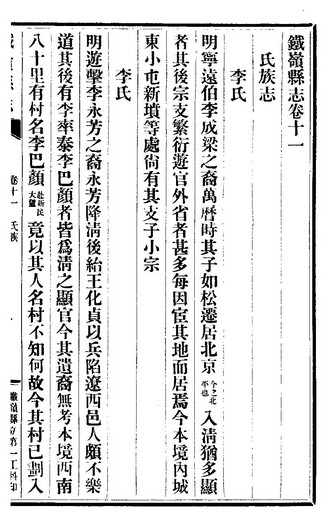 鐵嶺縣志卷十一
氏族志
李氏
明寧遠伯李成梁之裔萬曆時其子如松遷居北京今之北平也入清猶多顯
者其後宗支繁衍遊官外省者甚多每因宦其地而居焉今本境內城
東小屯新墳等處尙有其支子小宗
李氏
明遊擊李永芳之裔永芳降清後給王化貞以兵陷遼西邑人頗不樂
道其後有李率泰李巴顏者皆爲清之顯官今其遺裔無考本境西南
八十里有村名李巴顏赴新民大竟以其人名村不知何故今其村已劃入
卷十一 氏族
鐵嶺縣立第一工科印